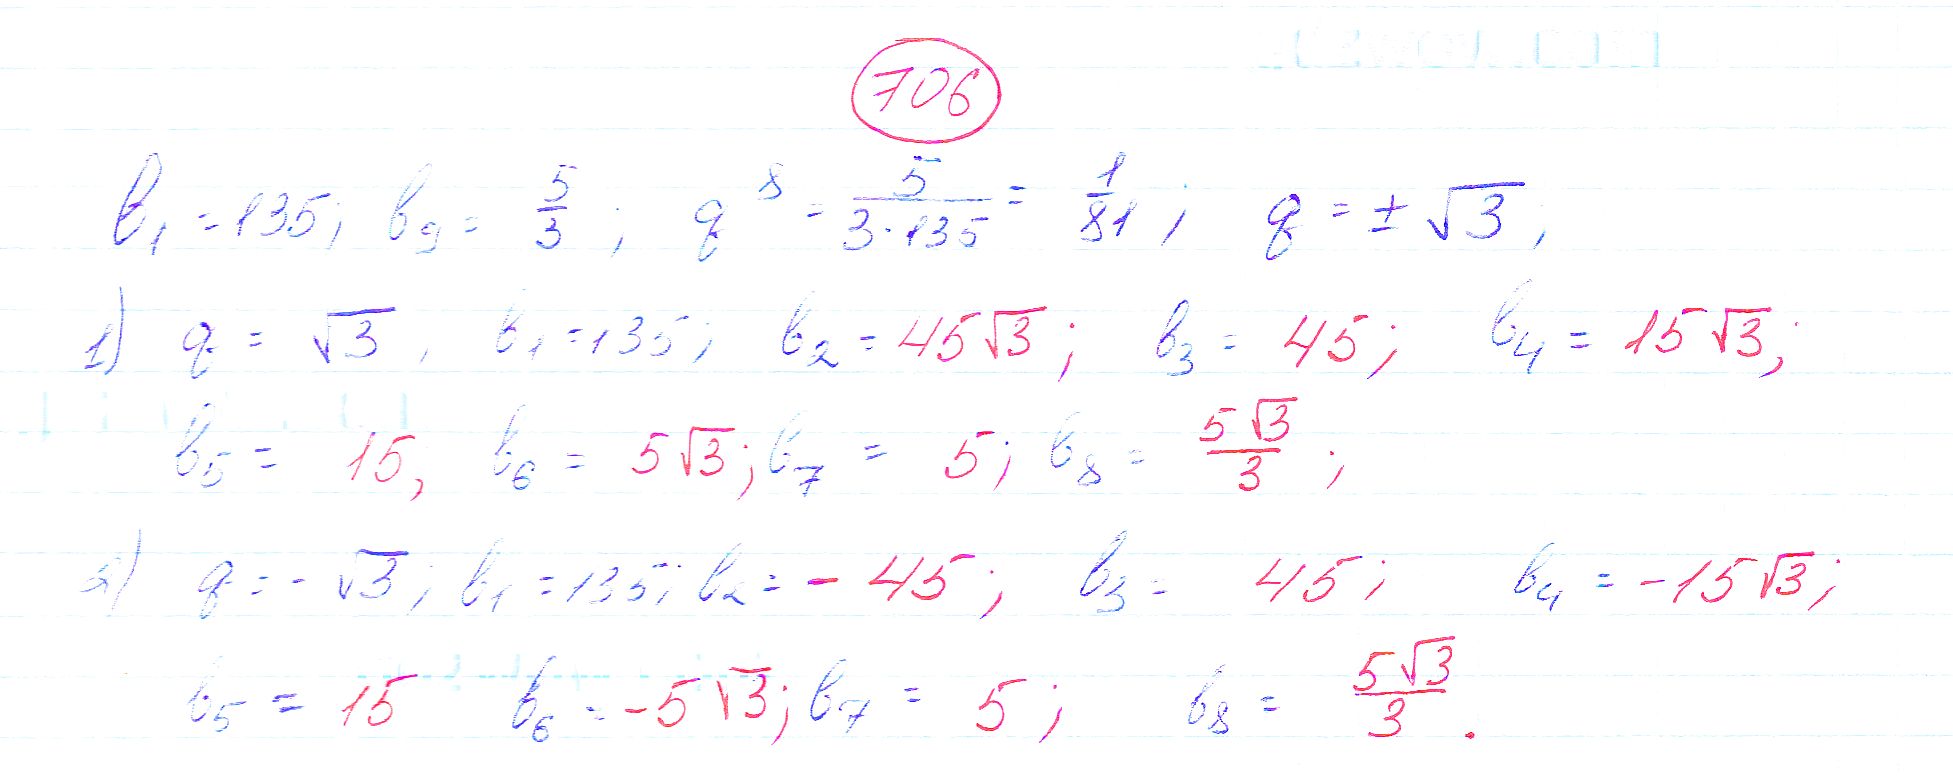 706
b₁ = 135; b₉ = 5/3; q⁸ = 5/(3·135) = 1/81; q = ±√3;
1) q = √3, b₁ = 135; b₂ = 45√3; b₃ = 45; b₄ = 15√3;
b₅ = 15, b₆ = 5√3; b₇ = 5; b₈ = 5√3/3;
2) q = -√3; b₁ = 135; b₂ = -45; b₃ = 45; b₄ = -15√3;
b₅ = 15 b₆ = -5√3; b₇ = 5; b₈ = 5√3/3.